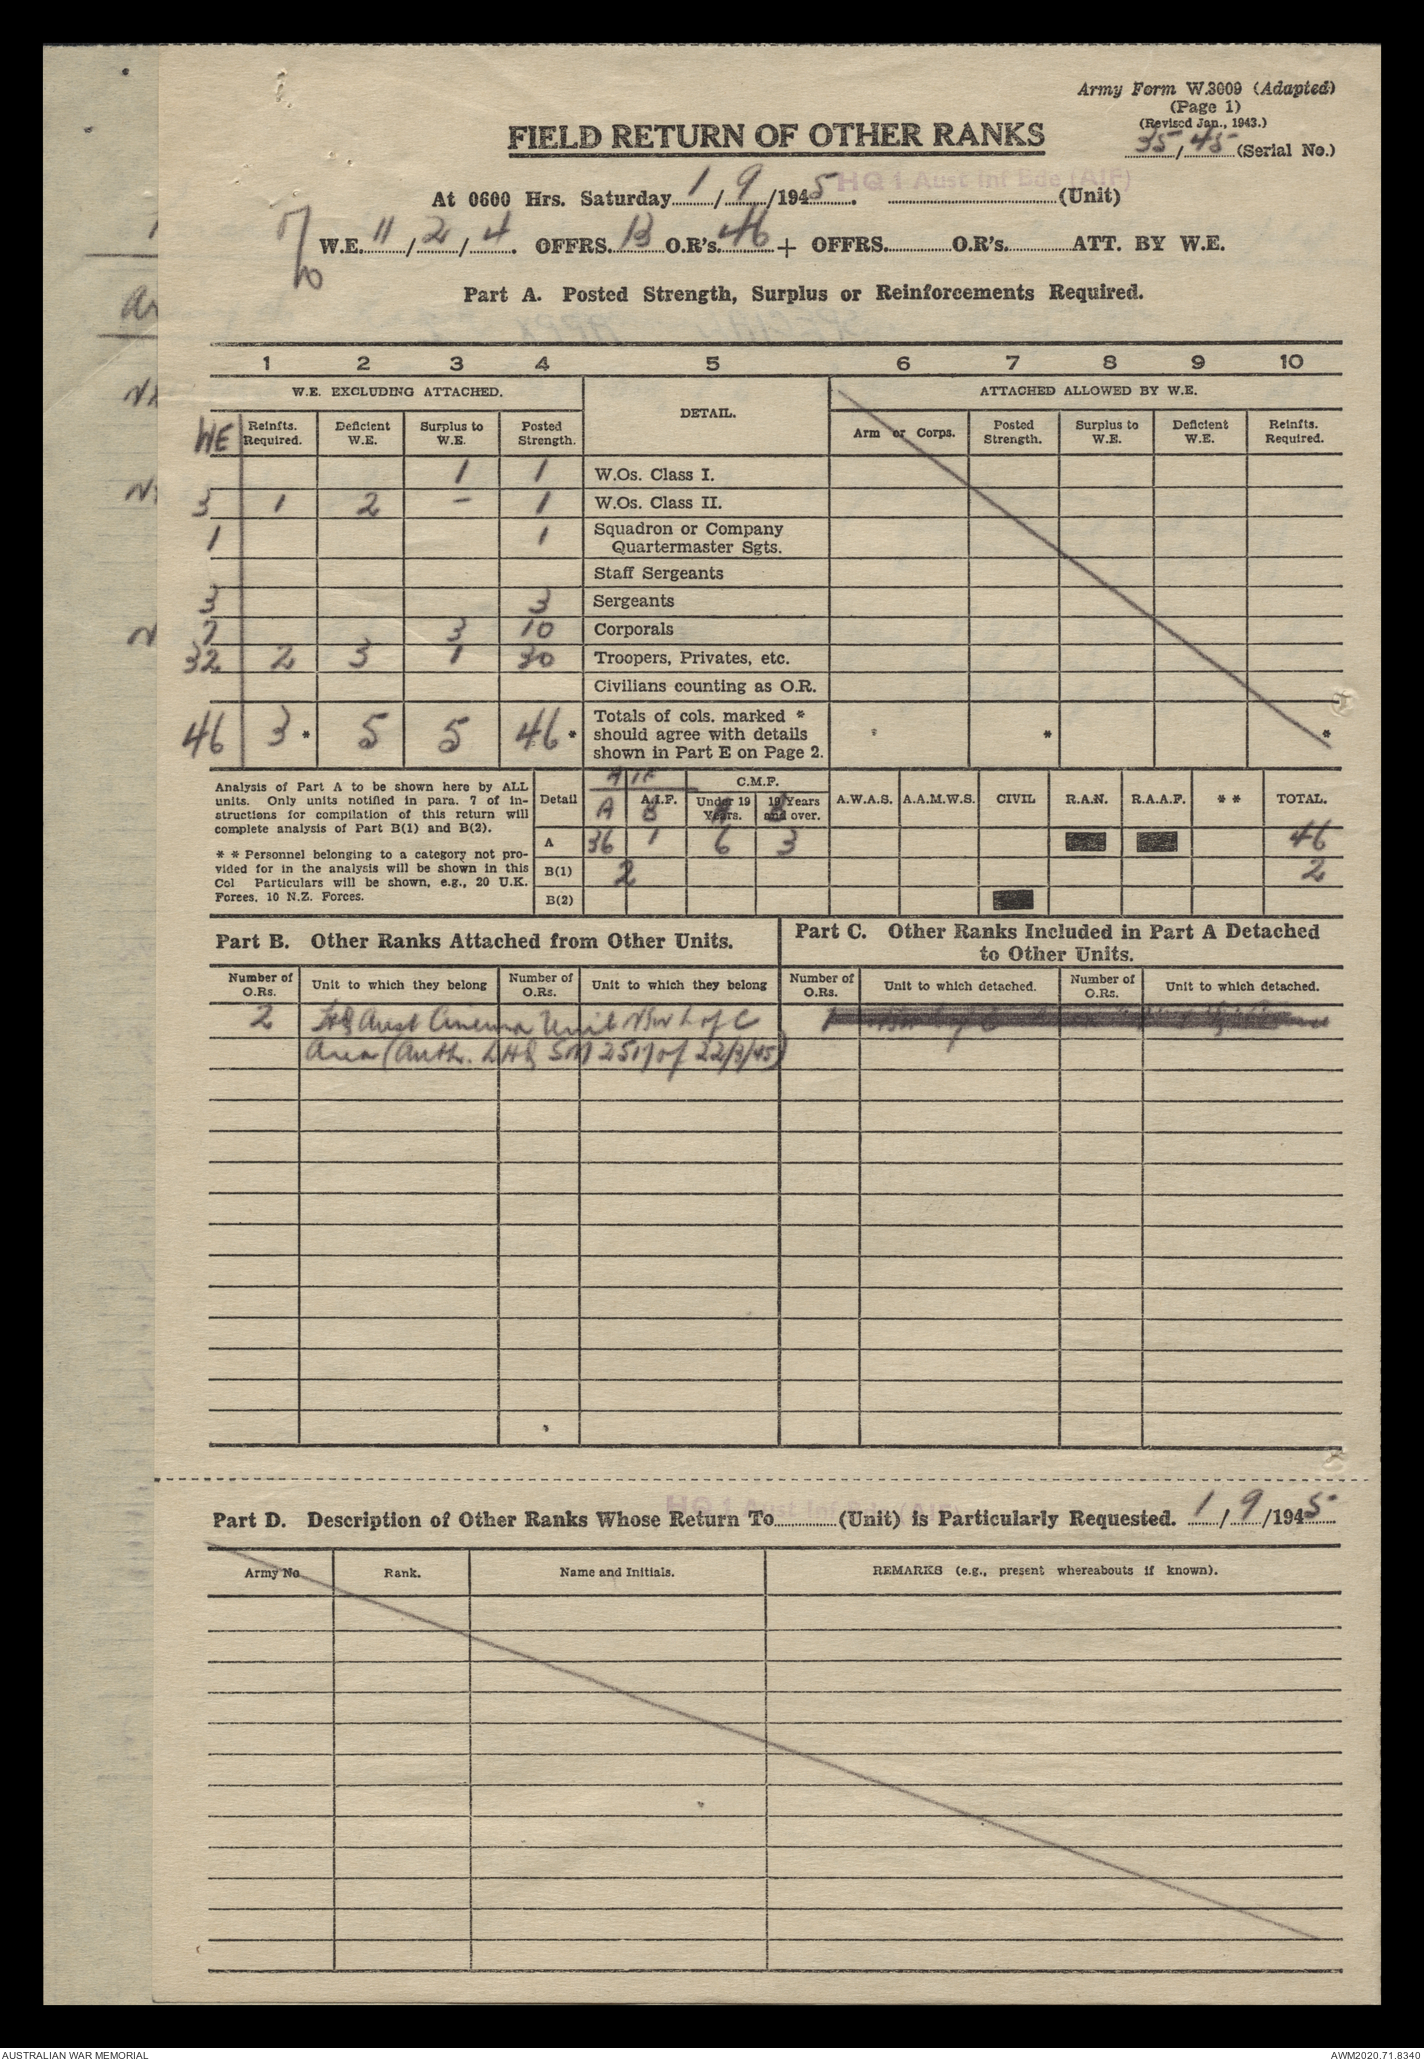 Army Form W.3009 (Adapted)
(Page 1)
(Revised Jan., 1943.)
35/45 (Serial No.)
FIELD RETURN OF OTHER RANKS
HQ 1 Aust Inf Bde (AIF)
At 0600 Hrs. Saturday 1/9/1945. (Unit)
W.E. 11/2/4. OFFRS. 13 O.R's. 46 + OFFRS. O.R's. ATT. BY W.E.
Part A. Posted Strength, Surplus or Reinforcements Required.
1 2 3 4 5 6 7 8 9 10
W.E. EXCLUDING ATTACHED. DETAIL. ATTACHED ALLOWED BY W.E.
WE Reinfts. Required. Deficient W.E. Surplus to W.E. Posted Strength. Arm or Corps. Posted Strength. Surplus to W.E. Deficient W.E. Reinfts. Required.
1 1 W.Os. Class I.
3 1 2 - 1 W.Os. Class II.
1 1 Squadron or Company
Quartermaster Sgts.
Staff Sergeants
3 3 Sergeants
7 3 10 Corporals
32 2 3 1 30 Troopers, Privates, etc.
Civilians counting as O.R.
46 3 * 5 5 46 * Totals of cols. marked *
should agree with details
shown in Part E on Page 2. * * *
Analysis of Part A to be shown here by ALL
units. Only units notified in para. 7 of in-
structions for compilation of this return will
complete analysis of Part B(1) and B(2).
* * Personnel belonging to a category not pro-
vided for in the analysis will be shown in this
Col Particulars will be shown, e.g., 20 U.K.
Forces, 10 N.Z. Forces.
AIF C.M.F.
Detail A A.I.F. B Under 19 Years. A 19 Years and over. B A.W.A.S. A.A.M.W.S. CIVIL R.A.N. R.A.A.F. * * TOTAL.
A 36 1 6 3 46
B(1) 2 2
B(2)
Part B. Other Ranks Attached from Other Units.
Part C. Other Ranks Included in Part A Detached
to Other Units.
Number of O.Rs. Unit to which they belong Number of O.Rs. Unit to which they belong Number of O.Rs. Unit to which detached. Number of O.Rs. Unit to which detached.
2 HQ Aust Cinema Unit NBW L of C
Area (Auth. LHQ SM 2517 of 22/3/45)
HQ 1 Aust Inf Bde (AIF)
Part D. Description of Other Ranks Whose Return To (Unit) is Particularly Requested. 1/9/1945
Army No. Rank. Name and Initials. REMARKS (e.g., present whereabouts if known).
AUSTRALIAN WAR MEMORIAL AWM2020.71.8340